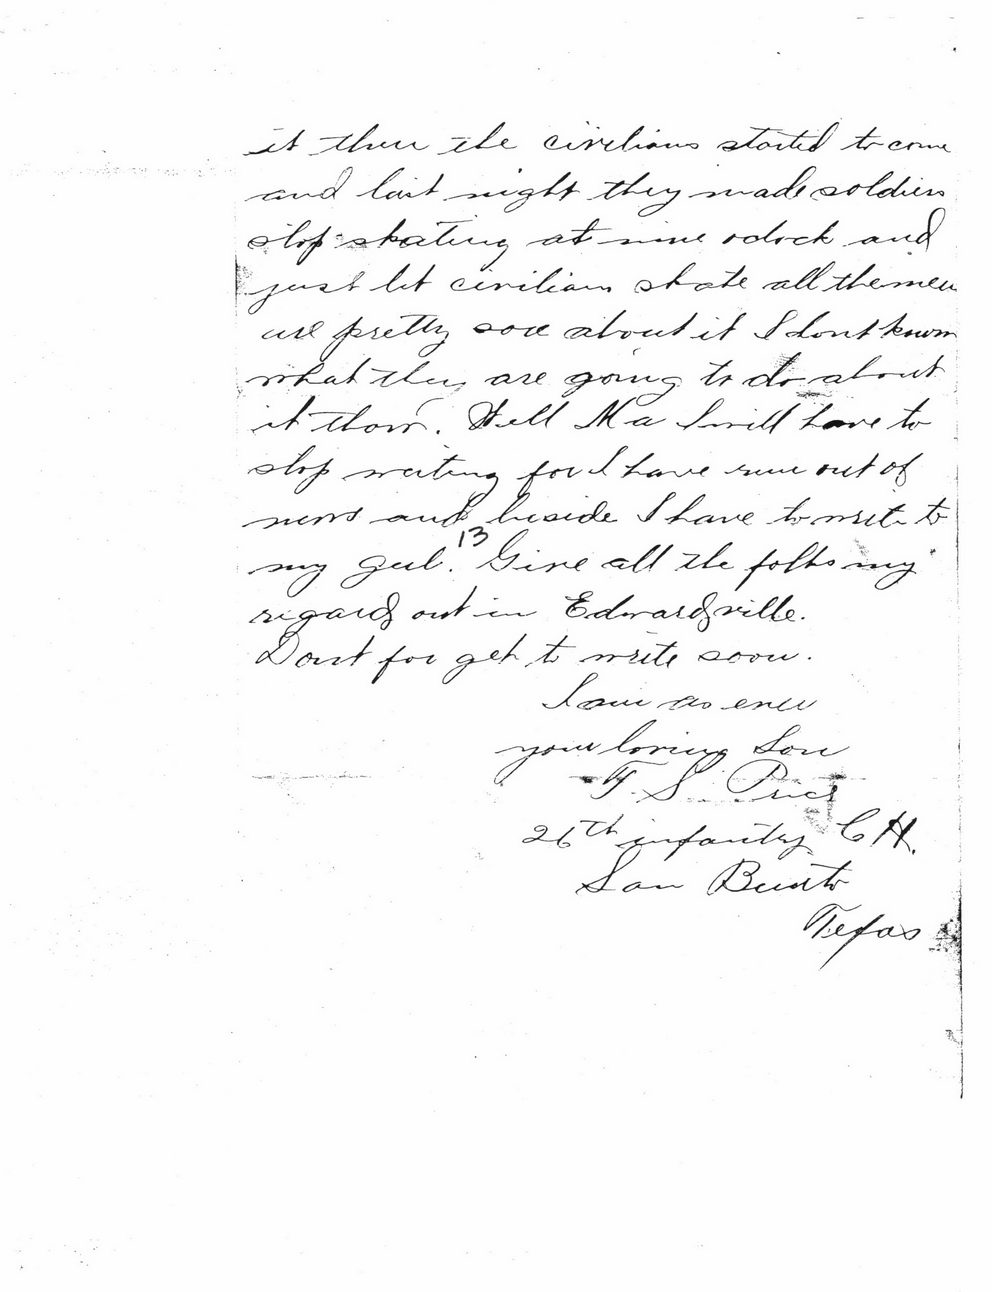 it then the civilians started to come
and last night they made soldiers
stop skating at nine oclock and
just let civilians skate all the men
are pretty sore about it I dont know
what they are going to do about
it thow. Well Ma I will have to
stop writing for I have run out of
news and beside I have to write to
my girl.13 Give all the folks my
regards out in Edwardsville.
Dont for get to write soon.
I am as ever
your loving Son
F. S. Price
26th infantry Co H.
San Benito
Texas